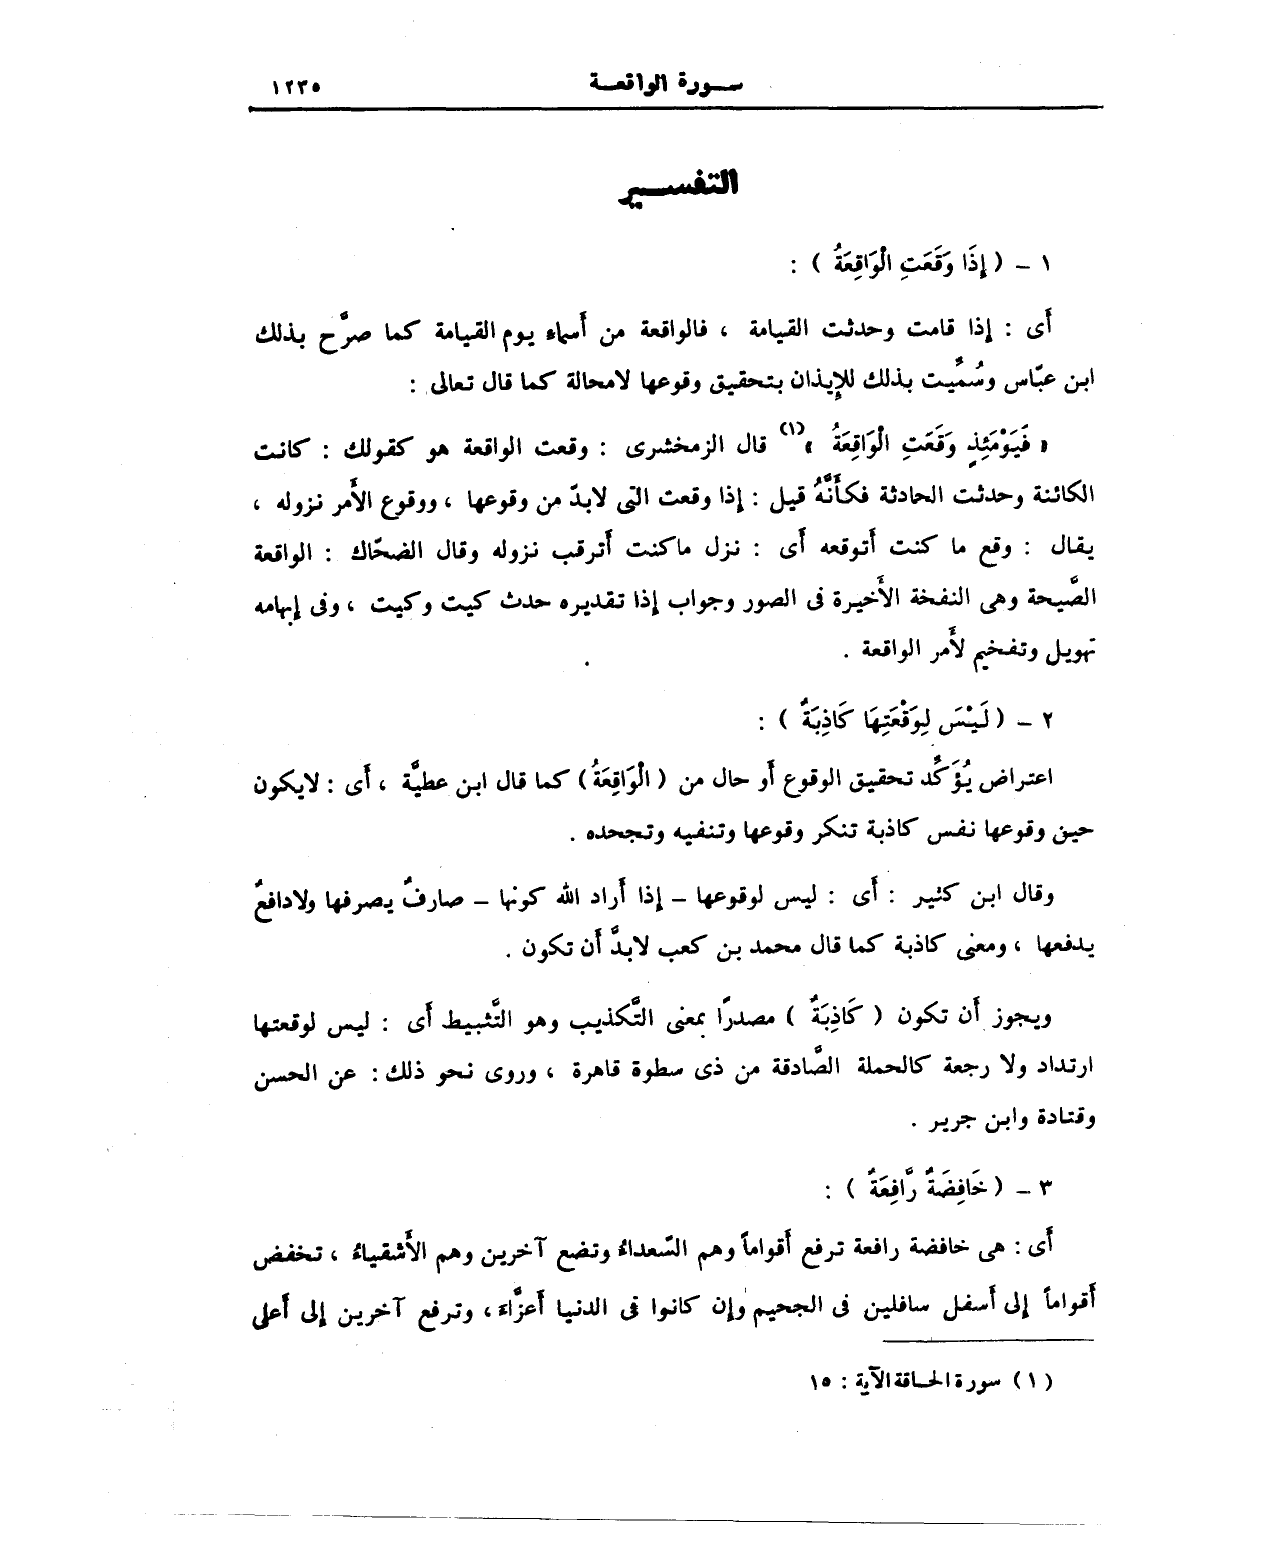 سورة الواقعة ١٢٣٥
التفسير
١ - ( إِذَا وَقَعَتِ الْوَاقِعَةُ ) :
أَى : إذا قامت وحدثت القيامة ، فالواقعة من أسماء يوم القيامة كما صرَّح بذلك
ابن عبّاس وسُمِّيت بذلك للإيذان بتحقيق وقوعها لامحالة كما قال تعالى :
« فَيَوْمَئِذٍ وَقَعَتِ الْوَاقِعَةُ »(١) قال الزمخشرى : وقعت الواقعة هو كقولك : كانت
الكائنة وحدثت الحادثة فكأَنَّهُ قيل : إذا وقعت التى لابدّ من وقوعها ، ووقوع الأَمر نزوله ،
يقال : وقع ما كنت أَتوقعه أَى : نزل ماكنت أَترقب نزوله وقال الضحّاك : الواقعة
الصَّيحة وهى النفخة الأَخيرة فى الصور وجواب إذا تقديره حدث كيت وكيت ، وفى إبهامه
تهويل وتفخيم لأَمر الواقعة .
٢ - ( لَيْسَ لِوَقْعَتِهَا كَاذِبَةٌ ) :
اعتراض يُؤَكِّد تحقيق الوقوع أَو حال من ( الْوَاقِعَةُ ) كما قال ابن عطيَّة ، أَى : لايكون
حين وقوعها نفس كاذبة تنكر وقوعها وتنفيه وتجحده .
وقال ابن كثير : أَى : ليس لوقوعها - إذا أَراد الله كونها - صارفٌ يصرفها ولادافعٌ
يدفعها ، ومعنى كاذبة كما قال محمد بن كعب لابدَّ أَن تكون .
ويجوز أَن تكون ( كَاذِبَةٌ ) مصدرًا بمعنى التَّكذيب وهو التَّثبيط أَى : ليس لوقعتها
ارتداد ولا رجعة كالحملة الصَّادقة من ذى سطوة قاهرة ، وروى نحو ذلك : عن الحسن
وقتادة وابن جرير .
٣ - ( خَافِضَةٌ رَّافِعَةٌ ) :
أَى : هى خافضة رافعة ترفع أَقواماً وهم السّعداءُ وتضع آخرين وهم الأَشقياءُ ، تخفض
أَقواماً إلى أَسفل سافلين فى الجحيم وإن كانوا فى الدنيا أَعزَّاءَ ، وترفع آخرين إلى أَعلى
( ١ ) سورة الحاقة الآية : ١٥